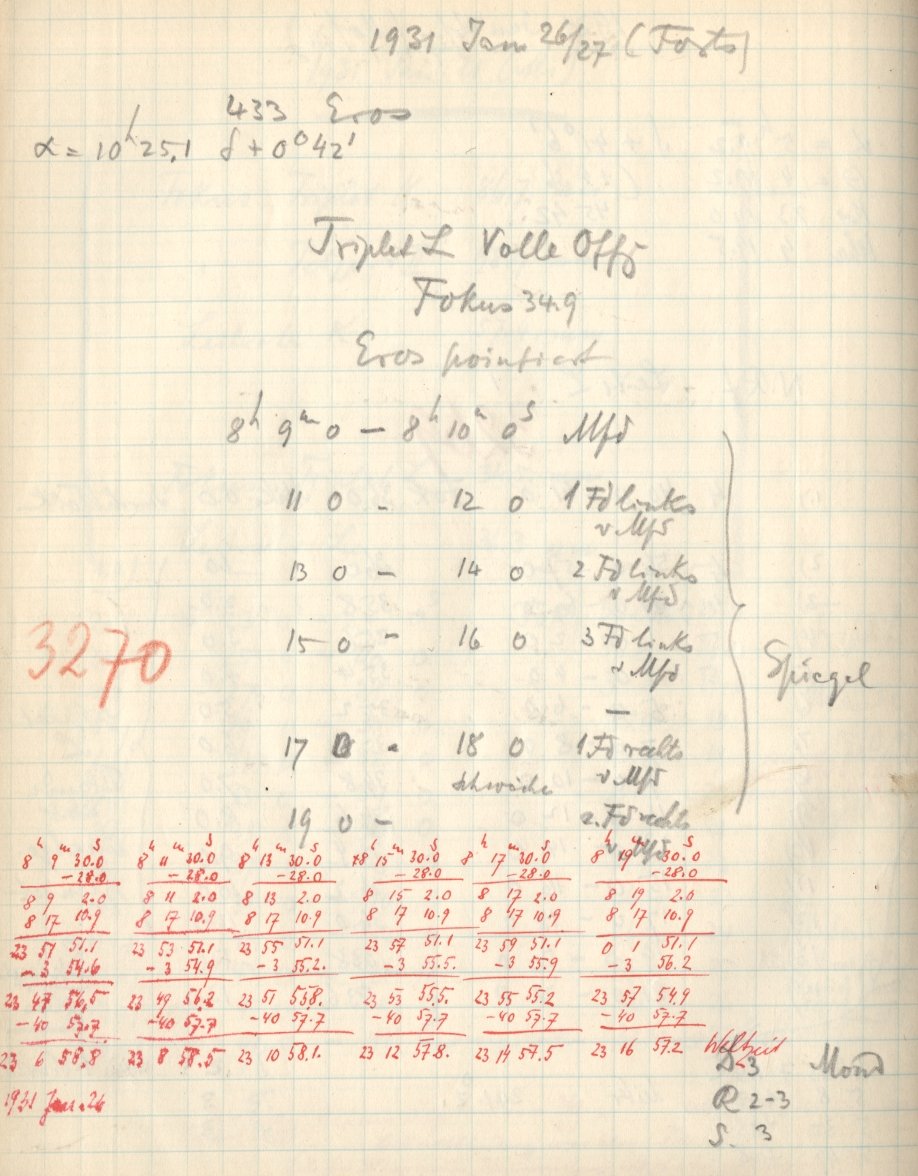 1931 Jan 26/27 (Forts)
433 Eros
α = 10h 25.1 δ + 0° 42'
Triplet L Volle Öffg
Fokus 34.9
Eros pointiert
8h 9m 0 — 8h 10m 0s Mfd
11 0 - 12 0 1 Fd links
v Mfd
13 0 — 14 0 2 Fd links
v Mfd
15 0 - 16 0 3 Fd links
v Mfd
3270
Spiegel
—
17 0 - 18 0 1 Fd rechts
v Mfd
schwächer
19 0 - 2. Fd rechts
v. Mfd
8h 9m 30.0s 8h 11m 30.0s 8h 13m 30.0s 8h 15m 30.0 8h 17m 30.0s 8h 19m 30.0s
-28.0 -28.0 -28.0 -28.0 -28.0 -28.0
8 9 2.0 8 11 2.0 8 13 2.0 8 15 2.0 8 17 2.0 8 19 2.0
8 17 10.9 8 17 10.9 8 17 10.9 8 17 10.9 8 17 10.9 8 17 10.9
23 51 51.1 23 53 51.1 23 55 51.1 23 57 51.1 23 59 51.1 0 1 51.1
-3 54.6 -3 54.9 -3 55.2. -3 55.5. -3 55.9 -3 56.2
23 47 56.5 23 49 56.2 23 51 55.8. 23 53 55.5. 23 55 55.2 23 57 54.9
-40 57.7 -40 57.7 -40 57.7 -40 57.7 -40 57.7 -40 57.7
23 6 58.8 23 8 58.5 23 10 58.1. 23 12 57.8. 23 14 57.5 23 16 57.2 Weltzeit
1931 Jan. 26
D-3 Mond
R 2-3
S. 3